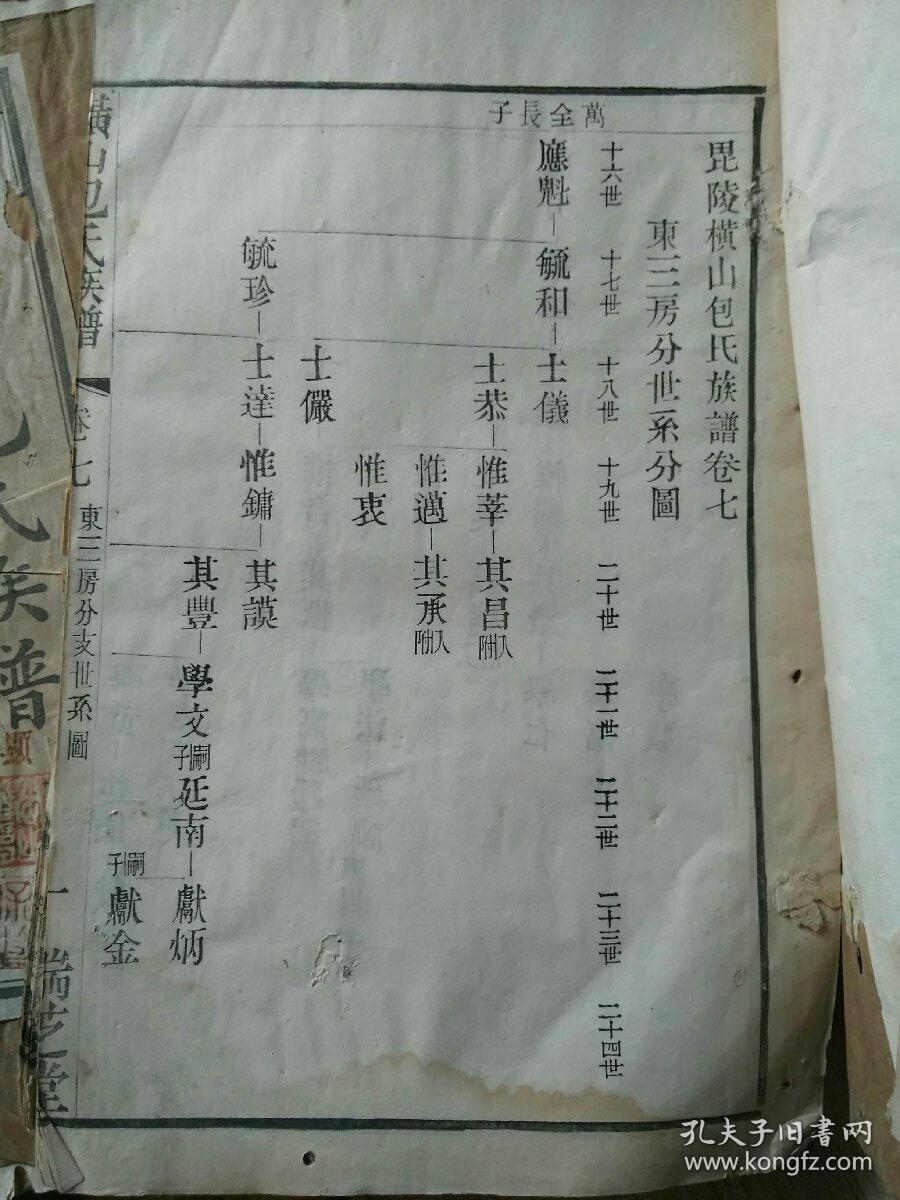 毘陵橫山包氏族譜卷七
東三房分世系分圖
十六世
十七世
十八世
十九世
二十世
二十一世
二十二世
二十三世
二十四世
萬全長子
應魁
毓和
士儀
士恭
惟莘
其昌
附入
惟邁
其承
附入
惟衷
士儼
毓珍
士達
惟鏞
其謨
其豐
學文
嗣子
延南
獻炳
嗣子
獻金
橫山包氏族譜
卷七
東三房分支世系圖
一
瑞芝堂
氏族譜
孔夫子旧書网
www.kongfz.com